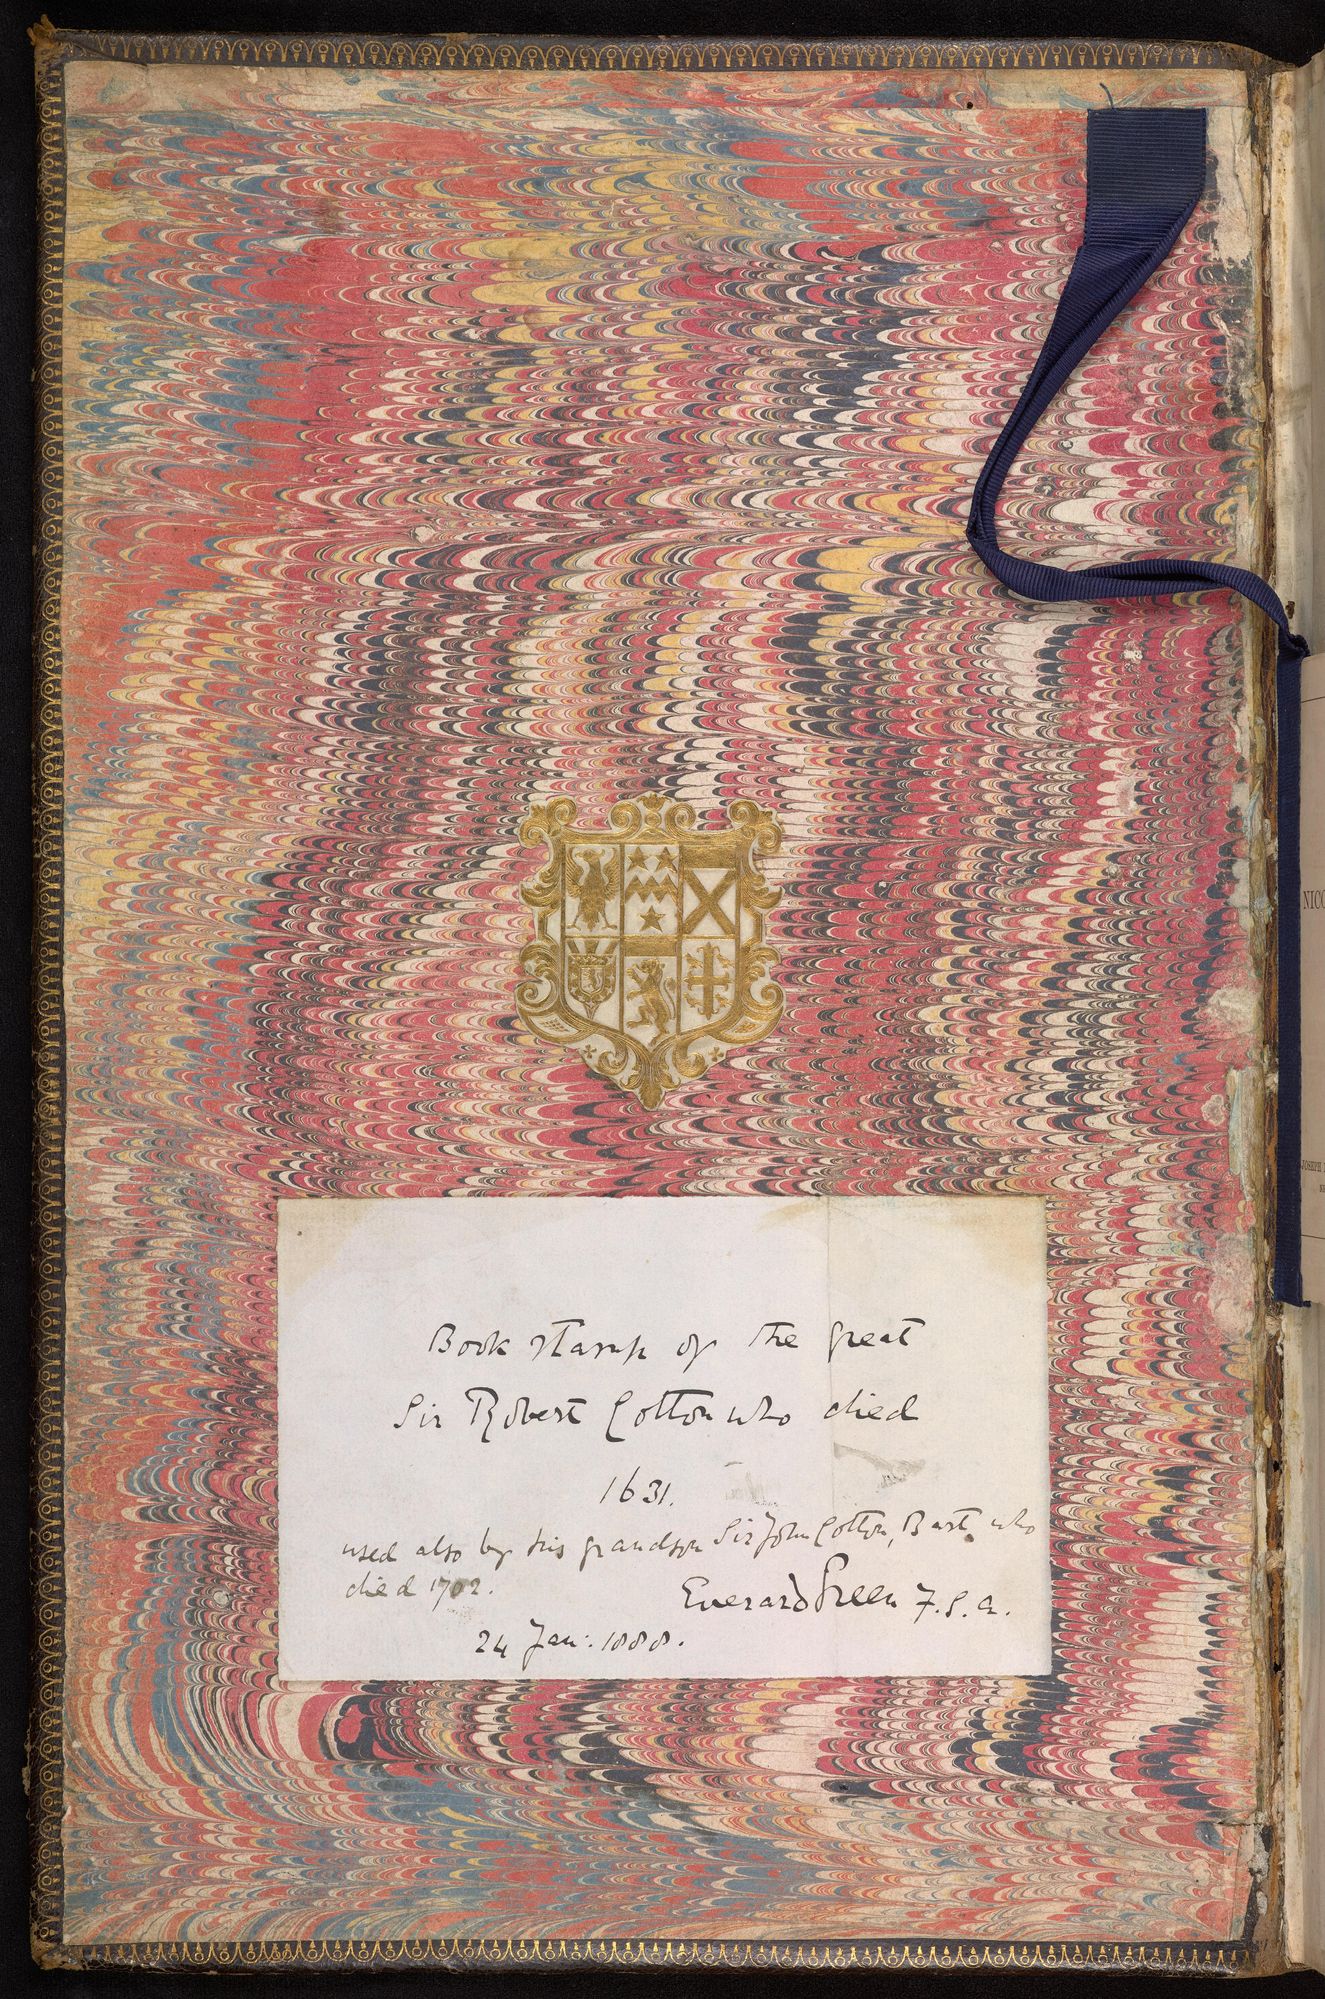 Book stamp of the great
Sir Robert Cotton who died
1631.
used also by his grandson Sir John Cotton, Bart. who
died 1702.
Everard Green F.S.A.
24 Jan: 1888.
NICO
JOSEPH